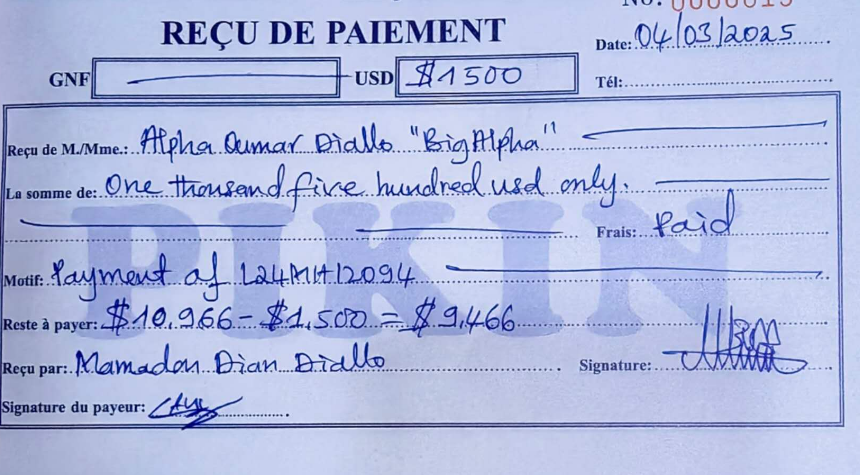 No. 0000015
REÇU DE PAIEMENT
Date: 04/03/2025
GNF USD $1500 Tél:
Reçu de M./Mme.: Alpha Oumar Diallo "BigAlpha"
La somme de: One thousand five hundred usd only.
Frais: Paid
PIKIN
Motif: Payment of L24MH12094
Reste à payer: $10.966 - $1.500 = $9.466
Reçu par: Mamadou Dian Diallo Signature:
Signature du payeur: